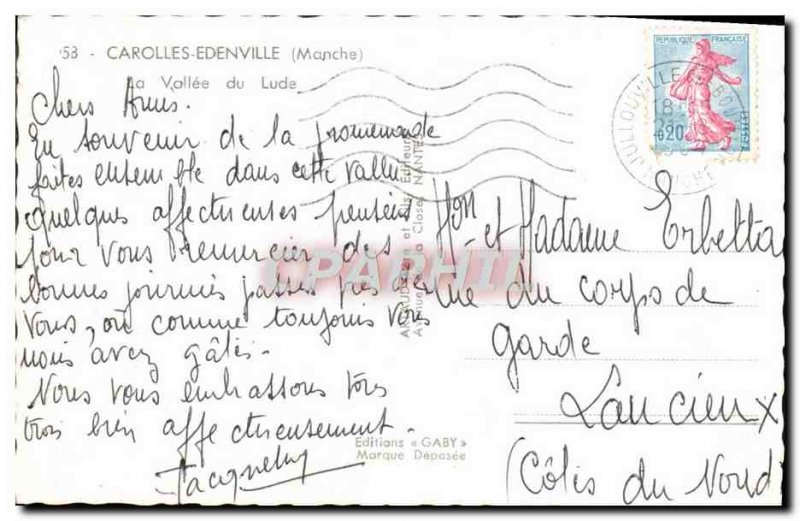 53 - CAROLLES-EDENVILLE (Manche)
La Vallée du Lude
Chers Amis.
En souvenir de la promenade
faites ensemble dans cette vallée
quelques affectueuses pensées
pour vous remercier des
bonnes journées passées près de
vous, où comme toujours vous
nous avez gâtés.
Nous vous embrassons tous
trois bien affectueusement.
Jacqueline
Editions « GABY »
Marque Déposée
Editeurs
NANTES
REPUBLIQUE FRANÇAISE
0,20
JULLOUVILLE
MANCHE
Mon et Madame Erbetta
rue du corps de
garde
Lancieux
(Côtes du Nord)
CPAPHIL